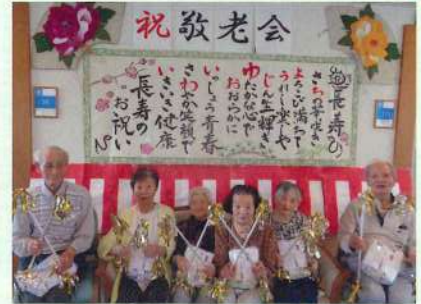 祝敬老会
長寿の
さちの花咲き
よろこび満ちて
うれし楽しや
じん生輝き
ゆたかな心で
おおらかに
いっしょう青春
さわやか笑顔で
いきいき健康
長寿の
お祝い